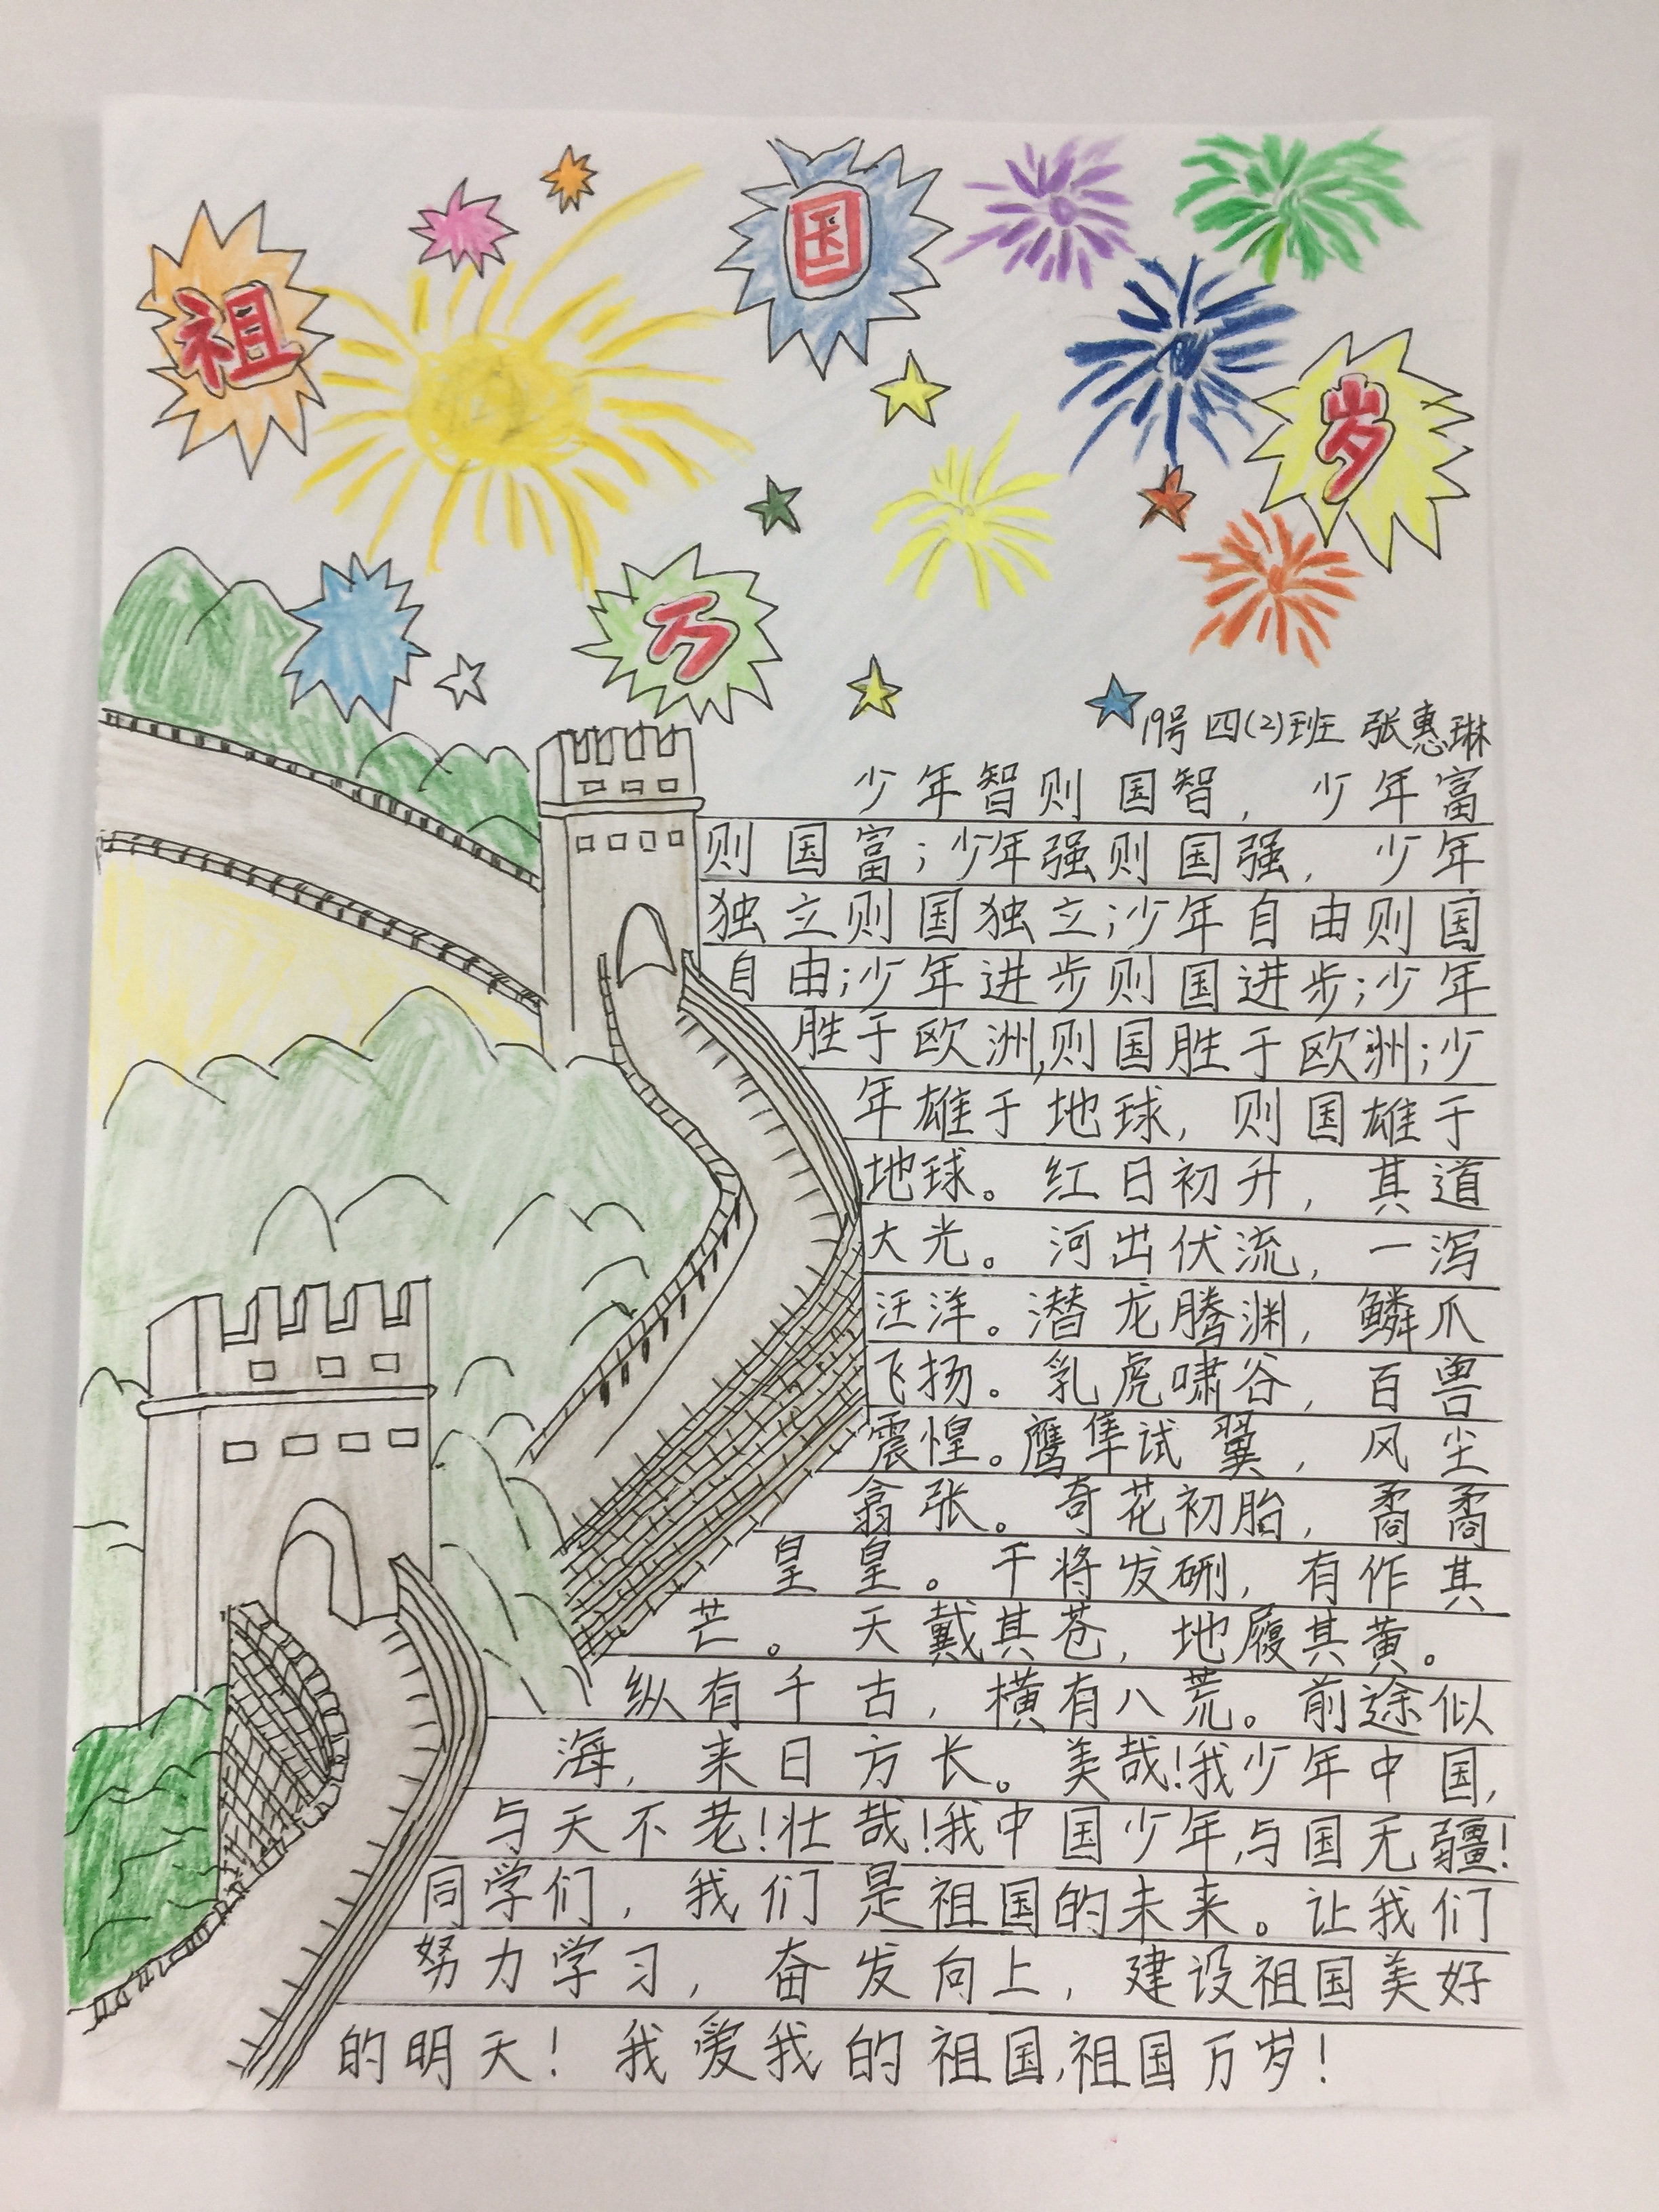 祖国万岁
19号 四(2)班 张惠琳
少年智则国智，少年富
则国富；少年强则国强，少年
独立则国独立；少年自由则国
自由；少年进步则国进步；少年
胜于欧洲，则国胜于欧洲；少
年雄于地球，则国雄于
地球。红日初升，其道
大光。河出伏流，一泻
汪洋。潜龙腾渊，鳞爪
飞扬。乳虎啸谷，百兽
震惶。鹰隼试翼，风尘
翕张。奇花初胎，矞矞
皇皇。干将发硎，有作其
芒。天戴其苍，地履其黄。
纵有千古，横有八荒。前途似
海，来日方长。美哉！我少年中国，
与天不老！壮哉！我中国少年，与国无疆！
同学们，我们是祖国的未来。让我们
努力学习，奋发向上，建设祖国美好
的明天！我爱我的祖国，祖国万岁！